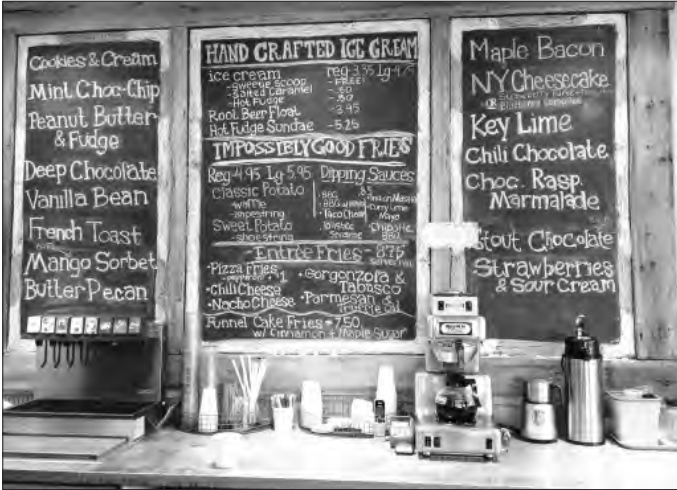 Cookies & Cream
Mint Choc-Chip
Peanut Butter
& Fudge
Deep Chocolate
Vanilla Bean
French Toast
Mango Sorbet
Butter Pecan
HAND CRAFTED ICE CREAM
ice cream reg-3.95 Lg-4.75
-Sweetie Scoop -FREE!
-Salted Caramel -.60
-Hot Fudge -.50
Root Beer Float -3.95
Hot Fudge Sundae -5.25
IMPOSSIBLY GOOD FRIES
Reg-4.95 Lg 5.95 Dipping Sauces
Classic Potato
-waffle
-shoestring
Sweet Potato
-shoestring
-BBQ
-Taco Cheese
-Curry Lime
Mayo
-Chipotle
BBQ
Entrée Fries - 8.75
•Pizza Fries
-pepperoni + $1
•Chili Cheese
•Nacho Cheese
•Gorgonzola &
Tabasco
•Parmesan &
Truffle Oil
Funnel Cake Fries • 7.50
w/ Cinnamon + Maple Sugar
Maple Bacon
NY Cheesecake
OR
Key Lime
Chili Chocolate
Choc. Rasp.
Marmalade
Stout Chocolate
Strawberries
& Sour Cream
BUNN